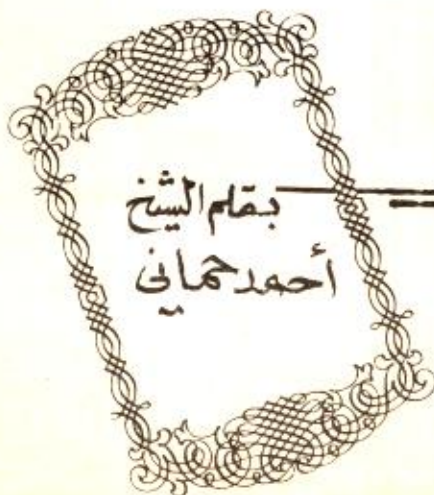 بقلم الشيخ
أحمد حماني